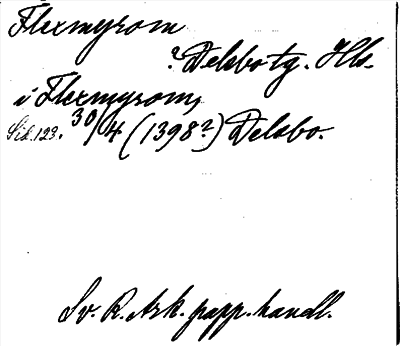 Flexmyrom
? Delsbo tg. Hls.
i Flexmyrom,
Sid. 123. 30/4 (1398?) Delsbo.
Sv. R. Ark. papp. handl.